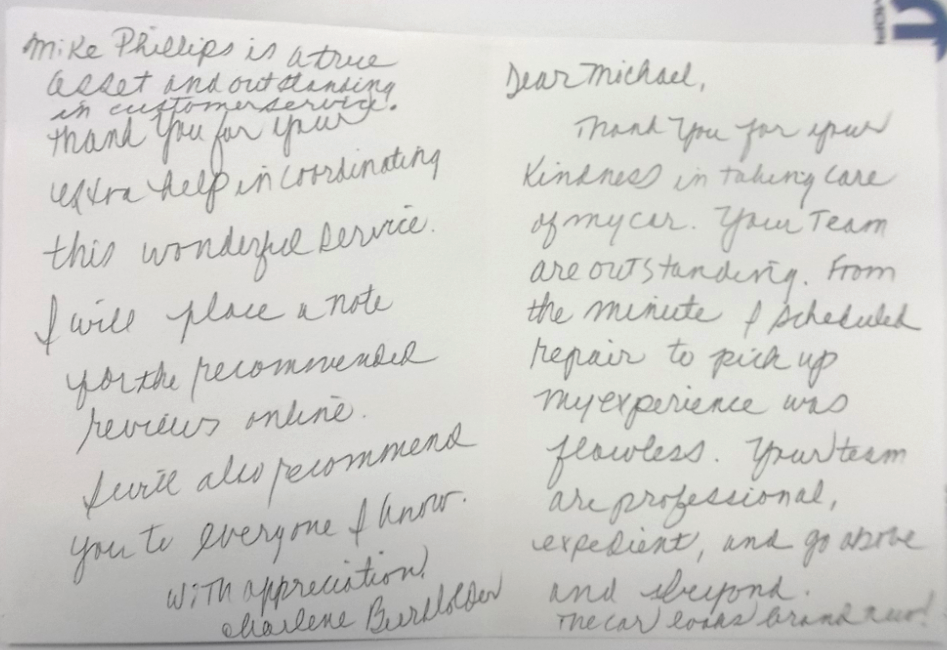 Mike Phillips is a true
asset and outstanding
in customer service.
Thank you for your
extra help in coordinating
this wonderful service.
I will place a note
for the recommended
reviews online.
I will also recommend
you to everyone I know.
With appreciation,
Charlene
Dear Michael,
Thank you for your
Kindness in taking care
of my car. Your Team
are outstanding. From
the minute I scheduled
repair to pick up
my experience was
flawless. Your team
are professional,
expedient, and go above
and beyond.
The car looks brand new!